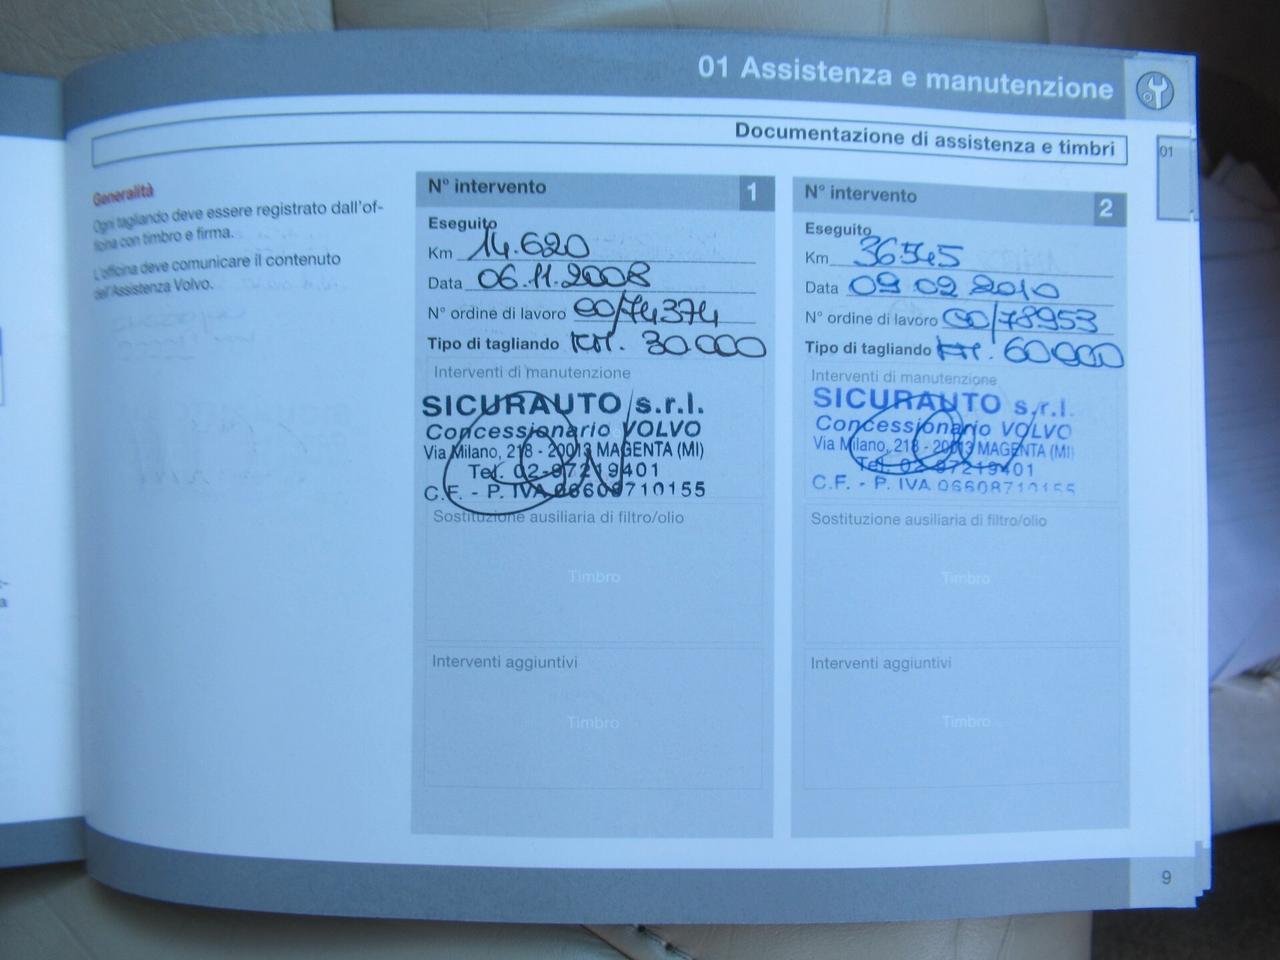 01 Assistenza e manutenzione
Documentazione di assistenza e timbri
01
Generalità
Ogni tagliando deve essere registrato dall'of-
ficina con timbro e firma.
L'officina deve comunicare il contenuto
dell'Assistenza Volvo.
N° intervento 1
Eseguito
Km 14.620
Data 06.11.2008
N° ordine di lavoro 00/74374
Tipo di tagliando KM. 30.000
Interventi di manutenzione
SICURAUTO s.r.l.
Concessionario VOLVO
Via Milano, 218 - 20013 MAGENTA (MI)
Tel. 02-97219401
C.F. - P. IVA 06608710155
Sostituzione ausiliaria di filtro/olio
Timbro
Interventi aggiuntivi
Timbro
N° intervento 2
Eseguito
Km 36545
Data 09 02 2010
N° ordine di lavoro 00/78953
Tipo di tagliando KM. 60000
Interventi di manutenzione
SICURAUTO s.r.l.
Concessionario VOLVO
Via Milano, 218 - 20013 MAGENTA (MI)
Tel. 02-97219401
C.F. - P. IVA 06608710155
Sostituzione ausiliaria di filtro/olio
Timbro
Interventi aggiuntivi
Timbro
9